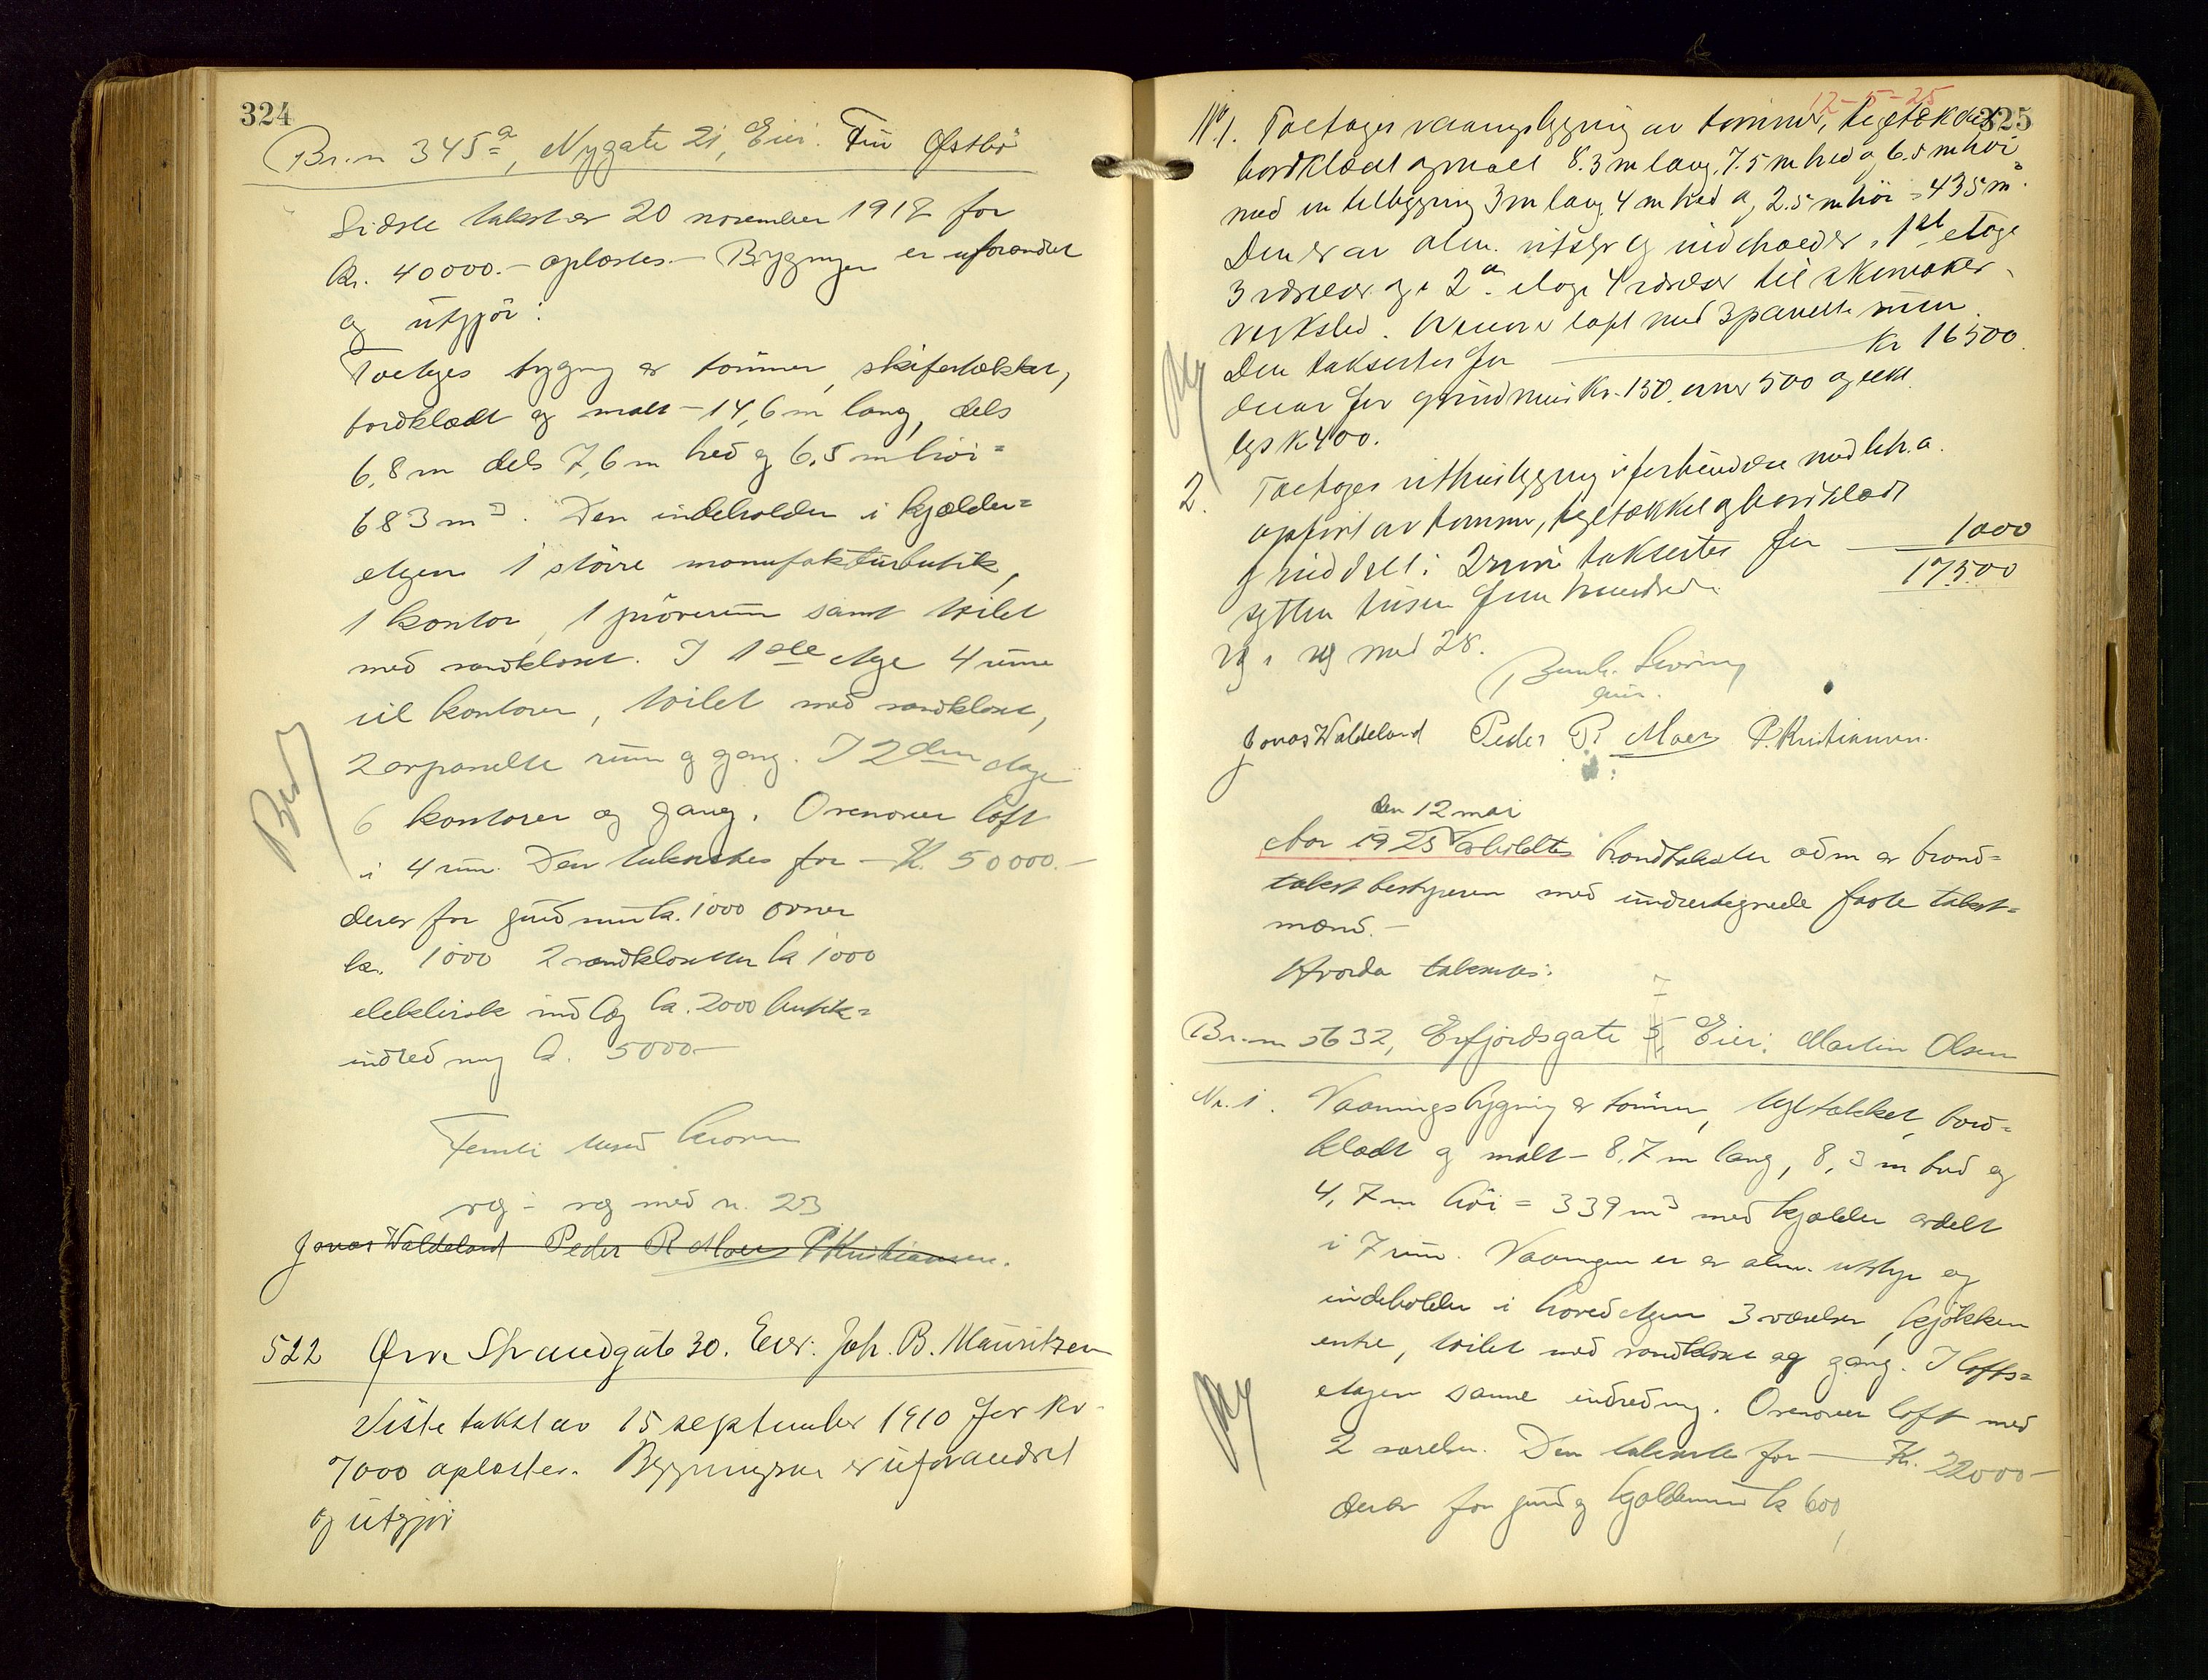 324
Br.n 345a, Nygate 21, Eier: Finn Østbö
Sidste takst av 20 november 1918 for
kr. 40000.- oplæstes.- Bygningen er uforandret
og utgjör:
Toetages bygning av tömmer, skifertækket,
bordklædt og malt - 14,6 m lang, dels
6,8 m dels 7,6 m bred og 6,5 m höi =
683 m3. Den indeholder i kjælder=
etagen 1 större manufakturbutik,
1 kontor, 1 pröverum samt toilet
med vandkloset. I 1ste etage 4 rum
til kontorer, toilet med vandkloset,
2 avpanelte rum og gang. I 2den etage
6 kontorer og gang. Ovenover loft
i 4 rum. Den takseres for - Kr. 50000.-
derav for grundmur kr. 1000 ovner
kr. 1000 2 vandklosetter kr 1000
elektrisk indlæg kr. 2000 butik=
indredning kr. 5000.-
Femti tusend kroner
vg i vg med n. 23
Jonas Waldeland Peder R Moer P. Kristiansen.
522 Øvre Strandgate 30. Eier: Joh. B. Mauritzen
Siste takst av 15 september 1910 for kr.
7000 oplæstes. Bygningene er uforandret
og utgjör
12-5-25
325
No 1. Toetages vaaningsbygning av tømmer, tegltækket
bordklædt og malt 8.3 m lang, 7.5 m bred og 6.5 m höi
med en tilbygning 3 m lang 4 m bred og 2.5 m höi = 435 m3.
Den er av alm. utstyr og indeholder i 1ste etage
3 værelser og i 2den etage 4 værelser til skomaker-
verksted. Ovenover loft med 3 panelte rum.
Den takseres for Kr 16500.
derav for grundmur kr. 150. ovner 500 og elek
lys k 400.
2. Toetages uthusbygning i forbindelse med litr. a.
opført av tømmer, tegltækket og bordklædt
og inddelt i 2 rum takseres for 1000
17500
sytten tusen fem hundrede
vg i vg med 28.
Jonas Waldeland Peder R Moer P. Kristiansen.
den 12 mai
Aar 1925 avholdtes brandtakster adm av brand=
takstbestyreren med undertegnede faste takst=
mænd.-
Hvorda takseres:
7
Br.n 5632, Erfjordsgate 5, Eier: Martin Olsen
Nr. 1. Vaaningsbygning av tömmer, tegltækket, bord=
klædt og malt - 8,7 m lang, 8,3 m bred og
4,7 m höi = 339 m3 med kjælder avdelt
i 7 rum. Vaaningen er av alm. utstyr og
indeholder i hovedetagen 3 værelser, kjökken
entre, toilet med vandkloset og gang. I lofts=
etagen samme indredning. Ovenover loft med
2 værelser. Den takseres for - Kr. 22000-
derav for grund og kjældermur kr 600,